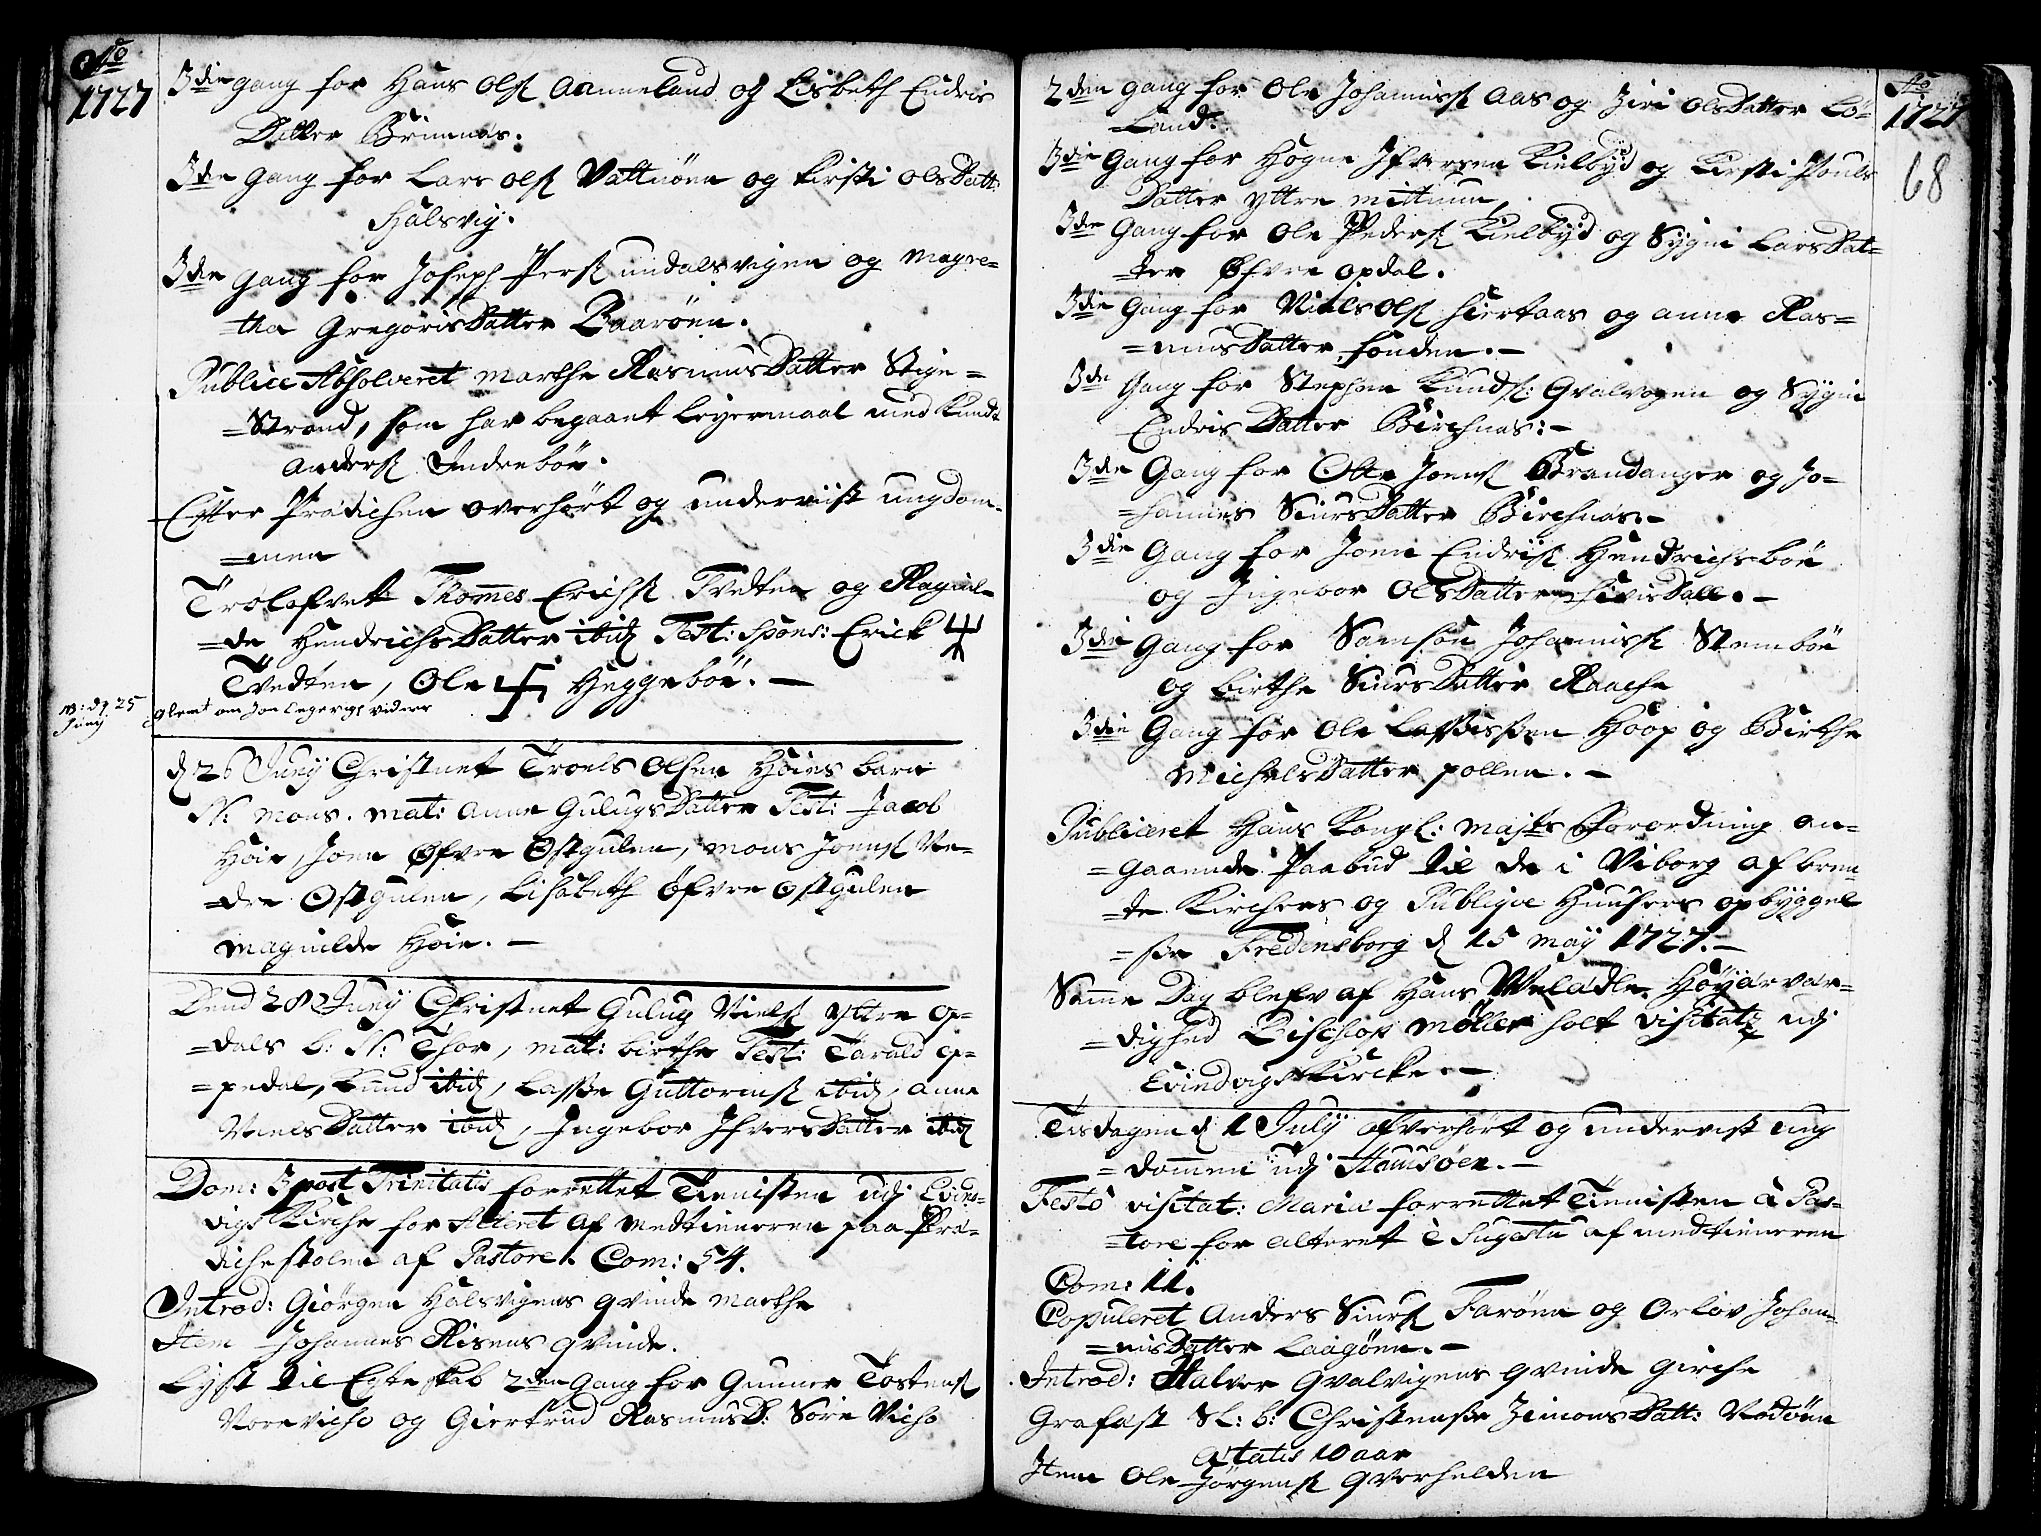 Ao
1727
3die gang for Hans Ols. Aanneland og Lisbeth Endris
Datter Brinnæs.
3die gang for Lars Ols. Vattnöen og Kirsti Ols Datt:
Halsvig.
3die gang for Joseph Pers. undalsvigen og Magre=
=tha Gregoris Datter Baaröen.
Publice Absolveret Marthe Rasmus Datter Stige=
=Strand, som har begaaet Leyermaal med Knud
Anders. Indreböe.
Efter Prædichen overhört og underviist ungdom=
=men
Trolofvet Thommes Erichs. Tvedten og Ragnil=
=de Hendrichs Datter ibid Test: Spons: Erick
Tvedten, Ole Heggeböe.
NB: d 25
Juny
d 26 Juny Christnet Troels Olsen Höies barn
N: Mons. mat: Anne Gulugs Datter Test: Jacob
Höie, Joen Øfvre Østgulen, Mons Joens. Ne=
=dre Østgulen, Lisabeth Öfvre Østgulen
Magnilde Höie.
Dend 28 Juny Christnet Gulug Niels. yttre Op=
=dals b: N: Thor, mat: birthe Test: Tarald Op=
=pedal, Knud ibid, Lasse Guttorms. ibid, Anne
Niels Datter ibid, Ingebor Ifvers Datter ibid
Dom: 3 post Trinitatis forrettet Tienisten udj Evind=
vigs Kirche for Alteret af Medtieneren paa Præ=
dichestolen af Pastore. Com: 54.
Introd: Giörgen Halsvigens qvinde Marthe
Item Johannes Risens qvinde.
Lyst til Egteskab 2den Gang for Gunner Tostens.
Norevich og Giertrud Rasmus D: Sörevich
Ao
1727
68
2den gang for Ole Johannis. Aas og Ziri Ols Datter Lö=
=land.
3die Gang for Hogne Ifversen Kielbyd og Kirsti Pouls
Datter yttre Mittuun.
3die Gang for Ole Peders. Kielbyd og Sygni Lars Dat=
=ter Øfvre Opdal.
3die Gang for Niels Ols. Hiertaas og Anne Ras=
=mus Datter
3die Gang for Stephen Knuds: Qvalvogen og Sygni
Endris Datter Birchnæs:
3die Gang for Otte Joens. Brandanger og Jo=
=hannes Siurs Datter Birchnæs.
3die Gang for Joen Endris. Hendrichsböe
og Ingebor Ols Datter
3die Gang for Samson Johannis. Stemböe
og birthe Siurs Datter Raache
3die Gang for Ole Lassessen Hoop og Birthe
Michels Datter pollen.
Publiceret Hans Kongl: Majts Forordning an=
=gaaende Paabud til de i Viborg af bren=
=te Kirchers og Publiqve Huusers opbyggel=
=se Fredensborg d 15 Maij 1727.
Samme Dag blefv af Hans Velædle Höyærvær=
=dighed Bischop Möller holt visitatz udj
Evindvigs Kircke.
Tisdagen d 1 July ofverhört og undervist ung
=dommen udj
Festo visitat: Mariæ forrettet Tienisten à Pas=
=tore for alteret è Sugestu af medtieneren
Com: 11.
Copuleret Anders Siurs. Faröen og Orlov Johan=
=nis Datter Laagöen.
Introd: Halvor Qvalvigens qvinde Girthe
Grafæst Sl: b: Christense Zimons Datt: Nödöen
Ætatis 10 aar
Item Ole Jörgens. Qverhelden